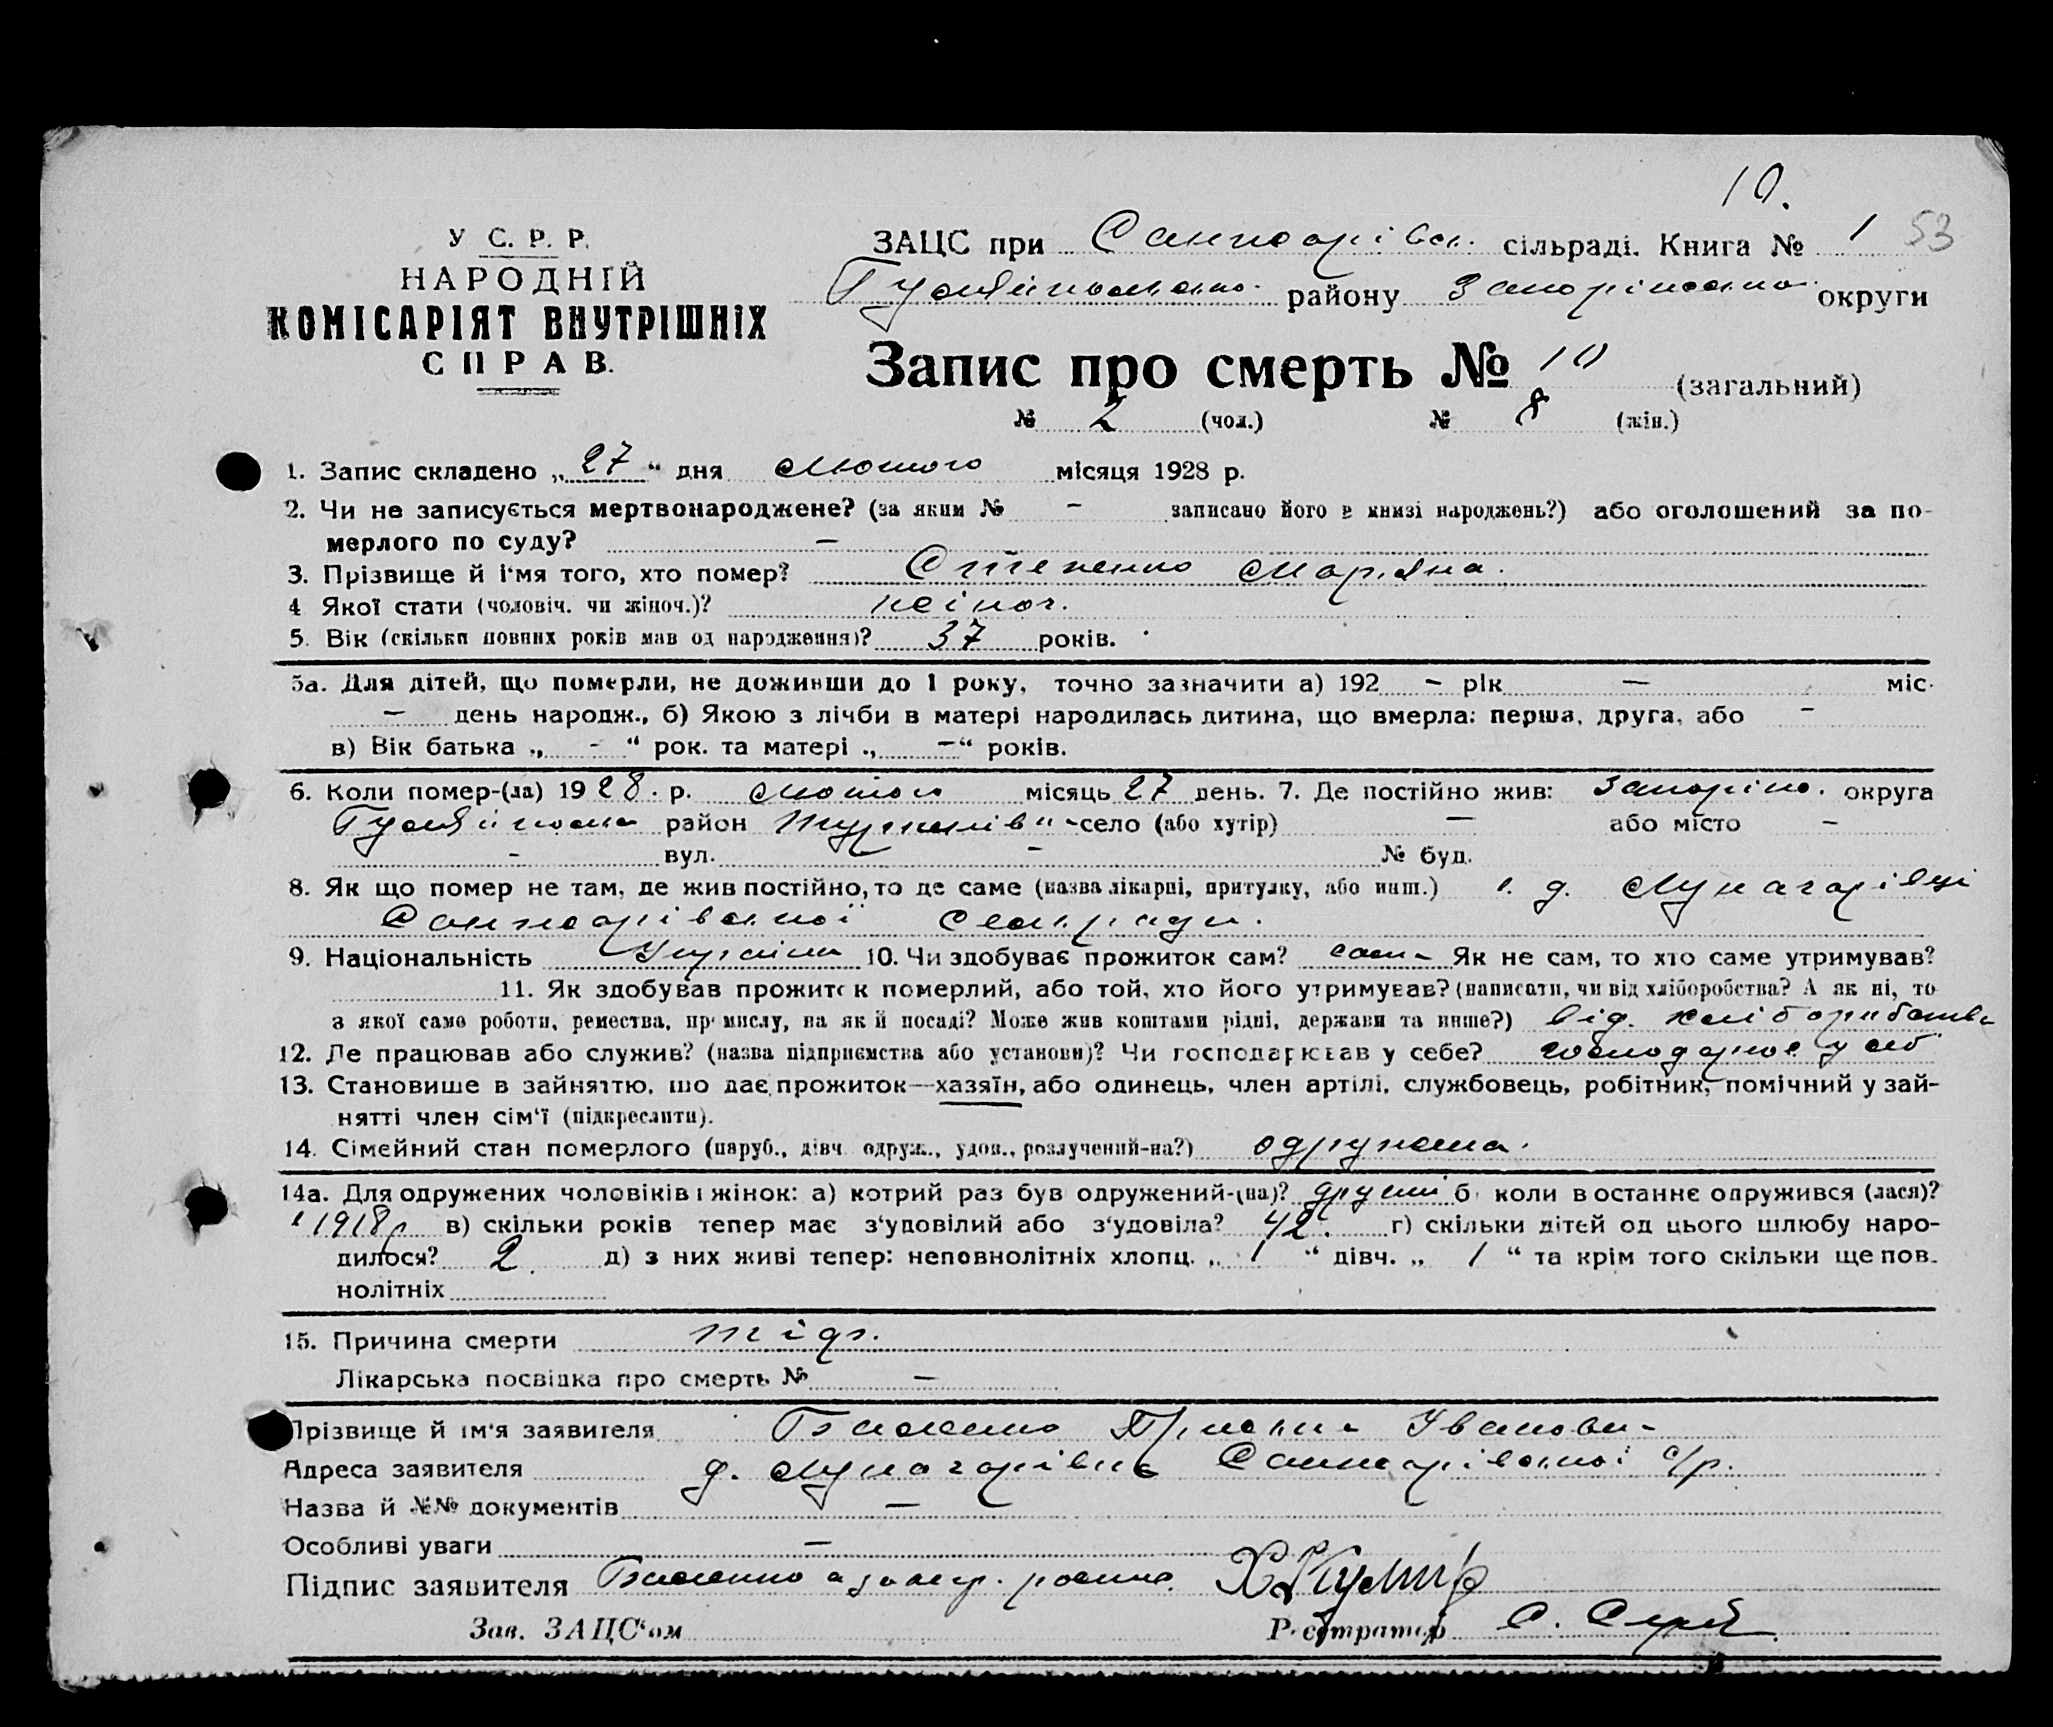 10.
У С. Р. Р.
НАРОДНІЙ
КОМІСАРІЯТ ВНУТРІШНІХ
СПРАВ.
ЗАЦС при Санжарівск. сільраді. Книга № 1 53
району Запоріжсько округи
Запис про смерть № 10 (загальний)
№ 2 (чол.) № 8 (жін.)
1. Запис складено „27“ дня лютого місяця 1928 р.
2. Чи не записується мертвонароджене? (за яким № - записано його в книзі народжень?) або оголошений за по-
мерлого по суду? —
3. Прізвище й ім'я того, хто помер? Мар'яна.
4 Якої стати (чоловіч. чи жіноч.)? жіноч.
5. Вік (скільки повних років мав од народження)? 37 років.
5а. Для дітей, що померли, не доживши до 1 року, точно зазначити а) 192 - рік — міс.
— день народж., б) Якою з лічби в матері народилась дитина, що вмерла: перша, друга, або -
в) Вік батька „ - “ рок. та матері „ — “ років.
6. Коли помер-(ла) 1928. р. лютого місяць 27 день. 7. Де постійно жив: Запоріж. округа
район село (або хутір) — або місто -
- вул. - № буд.
8. Як що помер не там, де жив постійно, то де саме (назва лікарні, притулку, або инш.) д.
Санжарівської сільради.
9. Національність 10. Чи здобуває прожиток сам? сама Як не сам, то хто саме утримував?
11. Як здобував прожиток померлий, або той, хто його утримував? (написати, чи від хліборобства? А як ні, то
з якої саме роботи, ремества, промислу, на якій посаді? Може жив коштами рідні, держави та инше?) від. хліборобства
12. Де працював або служив? (назва підприємства або установи)? Чи господарював у себе? у себ
13. Становище в зайняттю, що дає прожиток—хазяїн, або одинець, член артілі, службовець, робітник, помічний у зай-
нятті член сім'ї (підкреслити).
14. Сімейний стан померлого (паруб., дівч. одруж., удов., розлучений-на?) одружена.
14а. Для одружених чоловіків і жінок: а) котрий раз був одружений-(на)? другий б) коли востаннє одружився (лася)?
1918р в) скільки років тепер має з'удовілий або з'удовіла? 42. г) скільки дітей од цього шлюбу наро-
дилося? 2. д) з них живі тепер: неповнолітніх хлопц. „ 1 “ дівч. „ 1 “ та крім того скільки ще пов-
нолітніх
15. Причина смерти
Лікарська посвідка про смерть № —
Прізвище й ім'я заявителя
Адреса заявителя д. Санжарівської с/р.
Назва й №№ документів —
Особливі уваги —
Підпис заявителя
Зав. ЗАЦС'ом Реєстратор С.